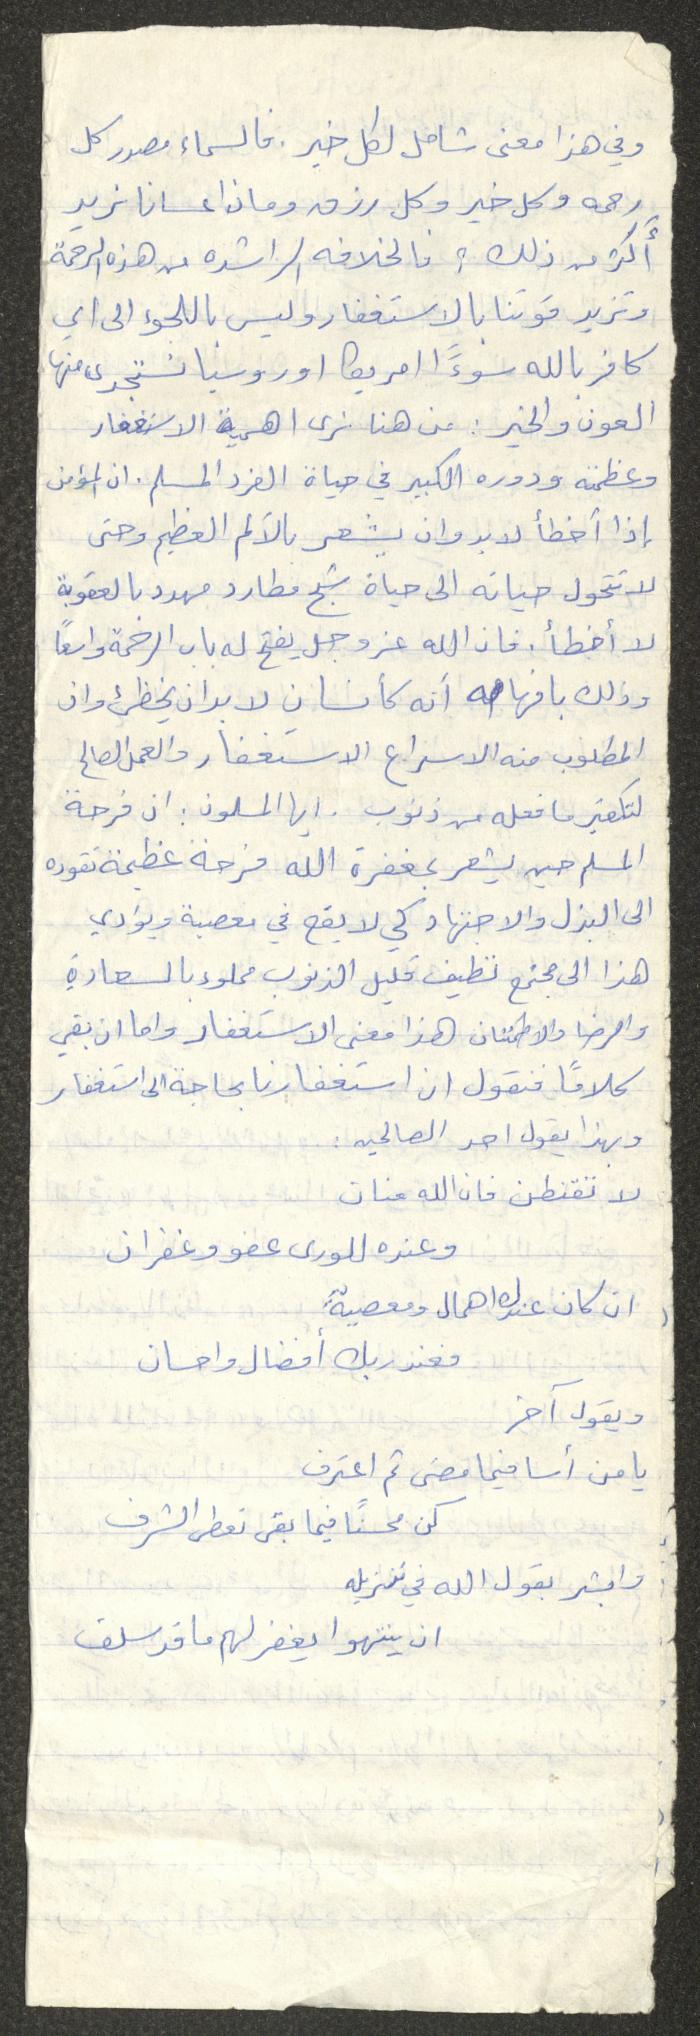 وفي هذا معنى شامل لكل خير . فالسماء مصدر كل
رحمه وكل خير وكل رزق وماذا عسانا نريد
أكثر من ذلك ؟ فالخلافه الراشده من هذه الرحمة
وتزيد قوتنا بالاستغفار وليس باللجوء الى اي
كافر بالله سوءًا امريكا او روسيا نستجدي منها
العون والخير : من هنا نرى اهمية الاستغفار
وعظمته ودوره الكبير في حياة الفرد المسلم . ان المؤمن
إذا أخطأ لا بد وان يشعر بالألم العظيم وحتى
لا تتحول حياته الى حياة شبح مطارد مهدد بالعقوبة
لا أخطأ . فان الله عز وجل يفتح له باب الرحمة واسعًا
وذلك بافهامه أنه كأنسان لا بد ان يخطئ وان
المطلوب منه الاسراع الاستغفار والعمل الصالح
لتكفير ما فعله من ذنوب . ايها المسلمون : ان فرحة
المسلم حين يشعر بمغفرة الله فرحة عظيمة تقوده
الى البذل والاجتهاد كي لا يقع في معصية ويؤدي
هذا الى مجتمع نظيف قليل الذنوب مملوء بالسعادة
والرضا والاطمئنان هذا معنى الاستغفار واما ان بقي
كلامًا فنقول ان استغفارنا بحاجة الى استغفار
وبهذا يقول احد الصالحين :
لا تقنطن فان الله منان
وعنده للورى عفو وغفران
ان كان عندك اهمال ومعصية
فعند ربك أفضال واحسان
ويقول آخر
يا من أسا فيما مضى ثم اعترف
كن محسنًا فيما بقى تعطى الشرف
وابشر بقول الله في تنزيله
ان ينتهوا يغفر لهم ما قد سلف